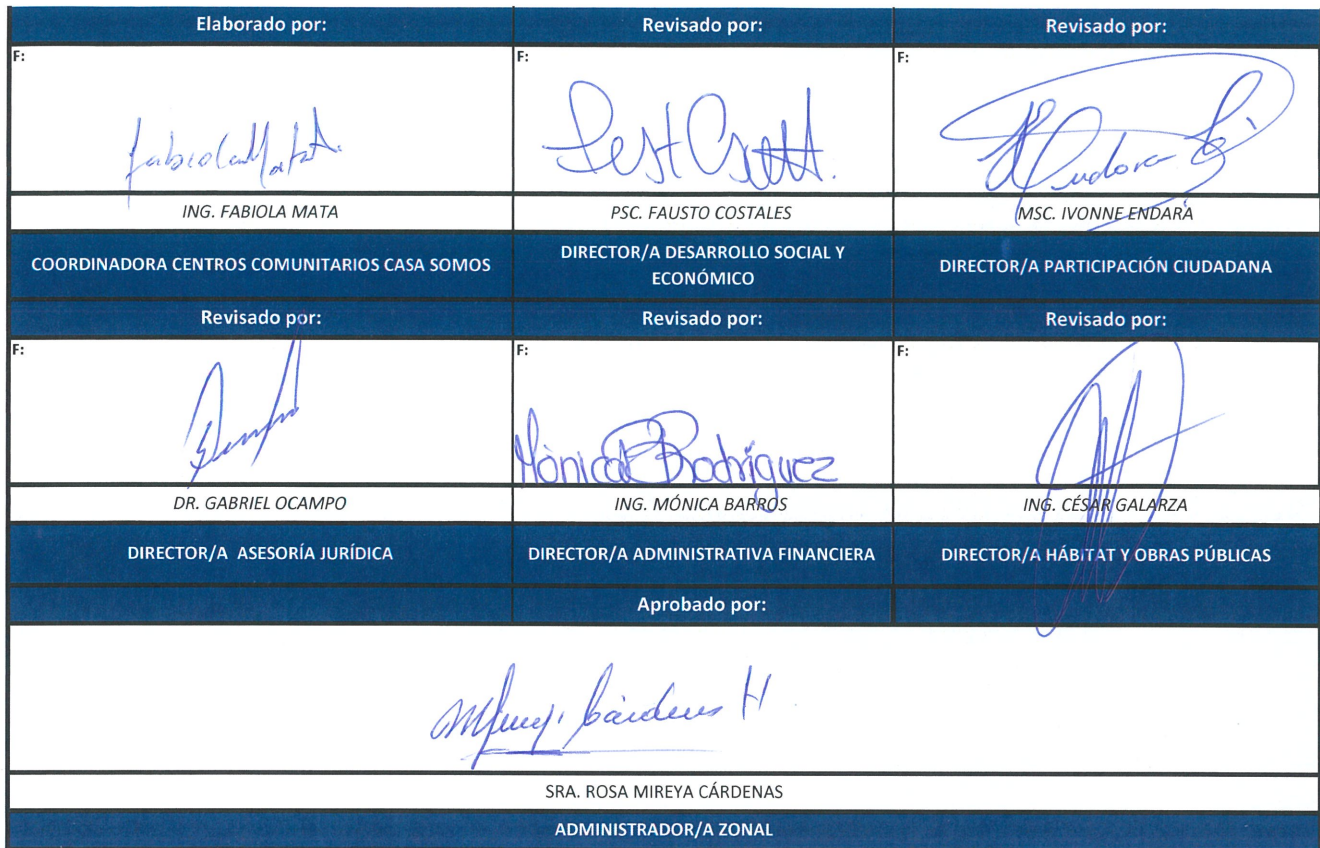 Elaborado por:
Revisado por:
Revisado por:
F:
F:
F:
ING. FABIOLA MATA
PSC. FAUSTO COSTALES
MSC. IVONNE ENDARA
COORDINADORA CENTROS COMUNITARIOS CASA SOMOS
DIRECTOR/A DESARROLLO SOCIAL Y
ECONÓMICO
DIRECTOR/A PARTICIPACIÓN CIUDADANA
Revisado por:
Revisado por:
Revisado por:
F:
F:
F:
Mónica Rodríguez
DR. GABRIEL OCAMPO
ING. MÓNICA BARROS
ING. CÉSAR GALARZA
DIRECTOR/A ASESORÍA JURÍDICA
DIRECTOR/A ADMINISTRATIVA FINANCIERA
DIRECTOR/A HÁBITAT Y OBRAS PÚBLICAS
Aprobado por:
SRA. ROSA MIREYA CÁRDENAS
ADMINISTRADOR/A ZONAL